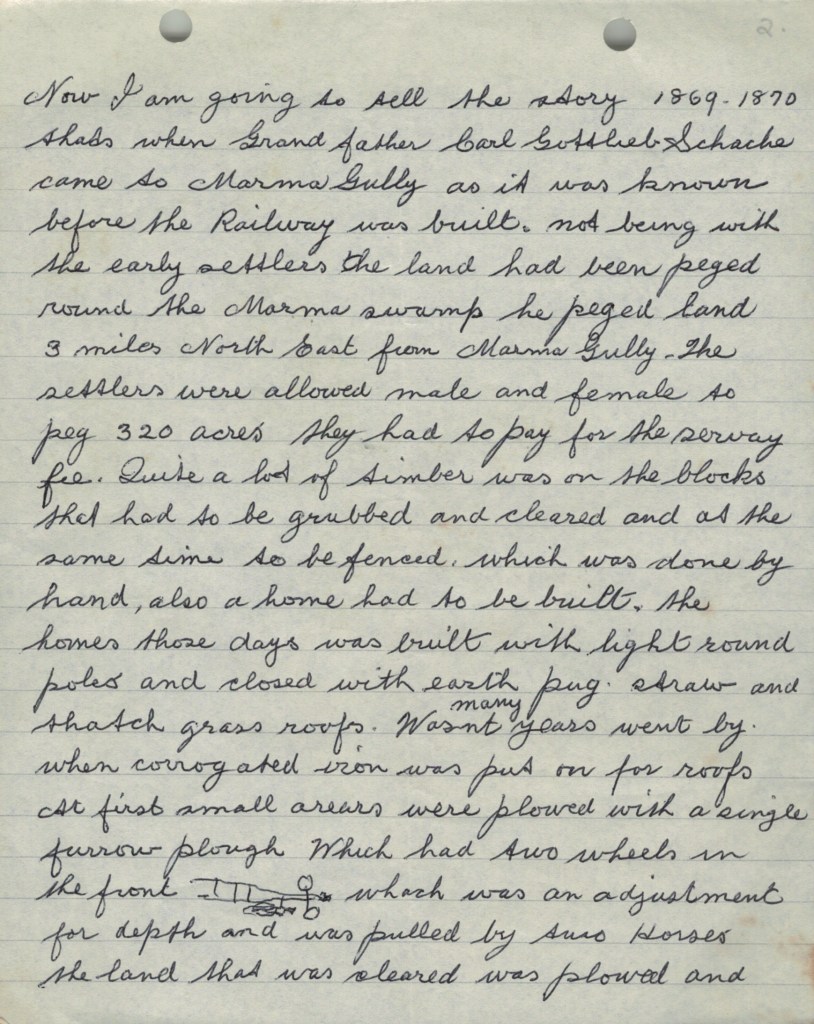 2.
Now I am going to tell the story 1869-1870
thats when Grand father Carl Gottlieb Schache
came to Marma Gully as it was known
before the Railway was built. not being with
the early settlers the land had been peged
round the Marma swamp he peged land
3 miles North East from Marma Gully. The
settlers were allowed male and female to
peg 320 acres they had to pay for the servay
fee. Quite a lot of timber was on the blocks
that had to be grubbed and cleared and at the
same time to be fenced. which was done by
hand, also a home had to be built. the
homes those days was built with light round
poles and closed with earth pug. straw and
thatch grass roofs. Wasnt many years went by.
when corrogated iron was put on for roofs
At first small arears were plowed with a single
furrow plough Which had two wheels in
the front which was an adjustment
for depth and was pulled by two Horses
the land that was cleared was plowed and